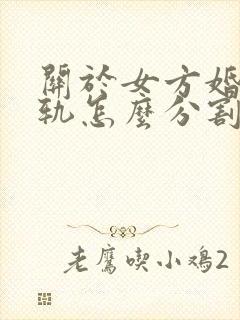 關於女方婚
軌怎麼分割
老鷹喫小鳮2